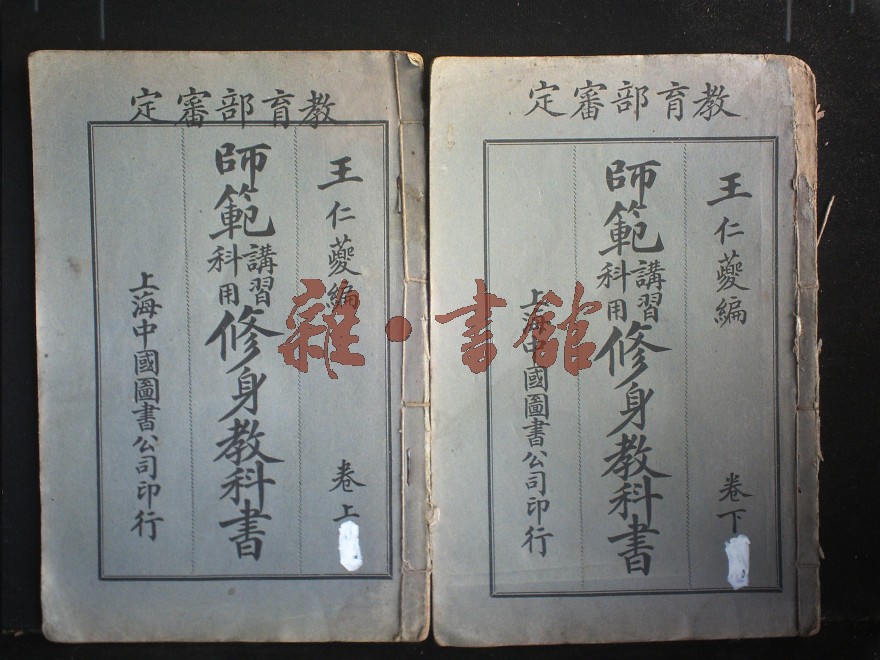 教育部審定
王仁夔編
卷上
師範講習科用修身教科書
上海中國圖書公司印行
教育部審定
王仁夔編
卷下
師範講習科用修身教科書
上海中國圖書公司印行
雜·書館